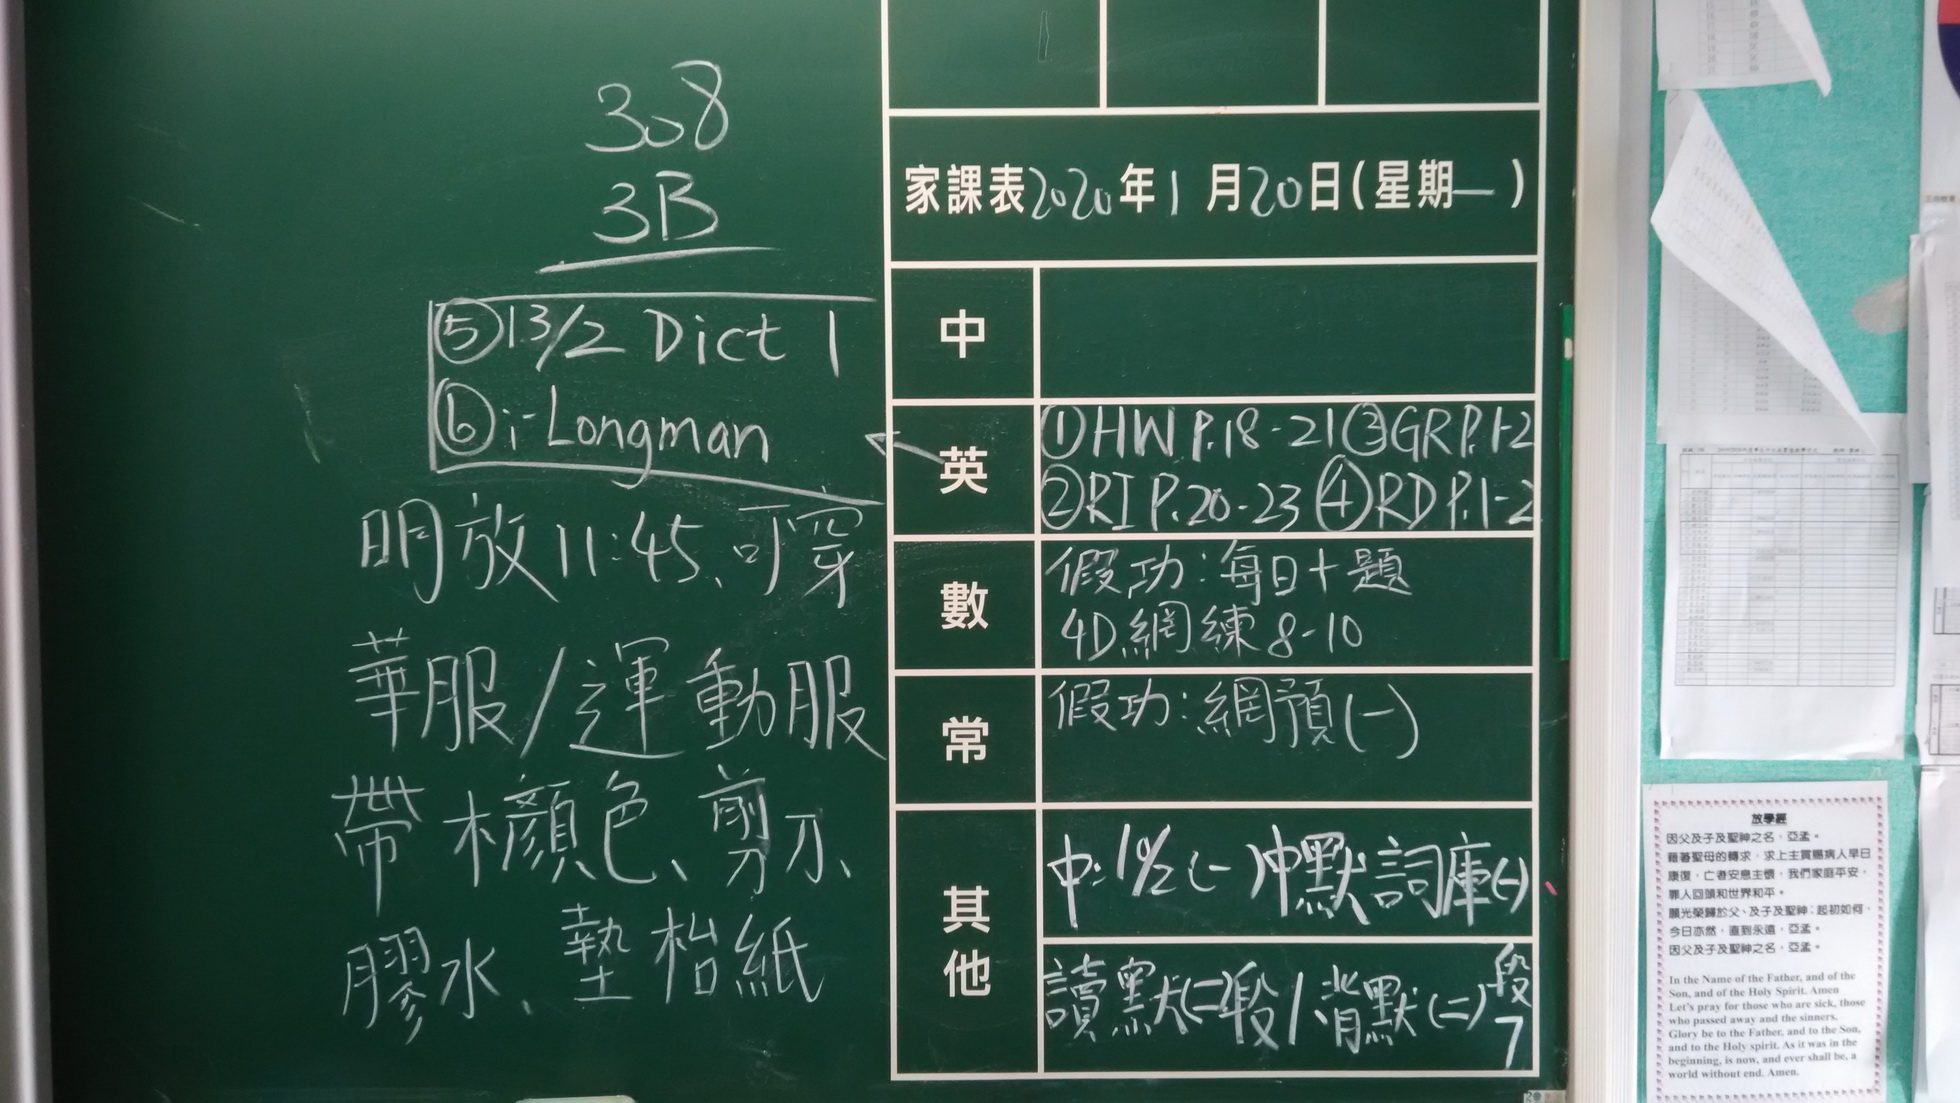 308
3B
⑤13/2 Dict 1
⑥i-Longman
明放11:45、可穿
華服/運動服
帶木顏色、剪刀、
膠水、墊枱紙
家課表2020年1月20日(星期一)
中
英
①HW P.18-21③GR P.1-2
②RI P.20-23④RD P.1-2
數
假功:每日十題
4D網練8-10
常
假功:網預(一)
其他
中:10/2(一)中默詞庫(一)
讀默(二)段/背默(二)段7
放學經
因父及子及聖神之名,亞孟。
藉著聖母的轉求,求上主賞賜病人早日
康復,亡者安息主懷,我們家庭平安,
罪人回頭和世界和平。
願光榮歸於父、及子及聖神;起初如何,
今日亦然,直到永遠,亞孟。
因父及子及聖神之名,亞孟。
In the Name of the Father, and of the
Son, and of the Holy Spirit. Amen
Let's pray for those who are sick, those
who passed away and the sinners.
Glory be to the Father, and to the Son,
and to the Holy spirit. As it was in the
beginning, is now, and ever shall be, a
world without end. Amen.